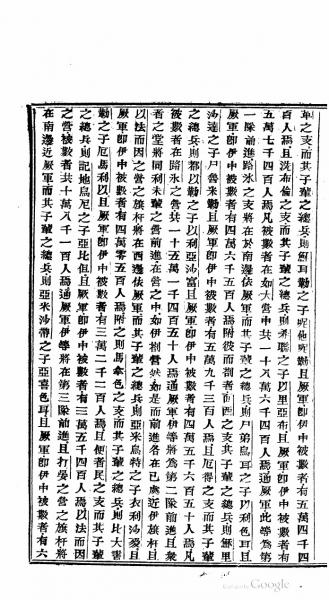 之支而其子輩之總兵則蘇耳勒之子呢他呢勒且厥軍即伊中被數者有五萬四千四
百人焉且洗布倫之支而其子輩之總兵則希聯之子以里亞布且厥軍即伊中被數者有
五萬七千四百人焉凡被數者在如大營中共一十八萬六千四百人焉通厥軍此等為第
一隊前進路氷之支將在於南邊依厥軍而其子輩之總兵則尸弟烏耳之子以利色耳且
厥軍即伊中被數者有四萬六千五百人焉附彼而劄者西面之支而其子輩之總兵則蘇里
沙達之子尸魯米勒且厥軍即伊中被數者有五萬九千三百人焉且厄得之支而其子輩
之總兵則都以勒之子以利亞沙富且厥軍即伊中被數者有四萬五千六百五十人焉凡
被數者在路氷之營共一十五萬一千四百五十人焉通厥軍伊等將為第二隊前進且衆
者之堂將同利未輩之營前進在營之中如伊劄營然如是而前進各在已處近伊旗杆且
以法而因之營之旗杆將在西邊依厥軍而其子輩之總兵則亞米烏特之子衣利沙麥且
厥軍即伊中被數者有四萬零五百人焉附之則馬拿色之支而其子輩之總兵則比大書
勒之子厄馬利以且厥軍即伊中被數者有三萬二千二百人焉且便者民之支而其子輩
之總兵則記地烏尼之子亞比但且厥軍即伊中被數者有三萬五千四百人焉以法而因
之營被數者共十萬八千一百人焉通厥軍伊等將在第三隊前進且打晏之營之旗杆將
在南邊近厥軍而其子輩之總兵則亞米沙帶之子亞喜色耳且厥軍即伊中被數者有六
Google